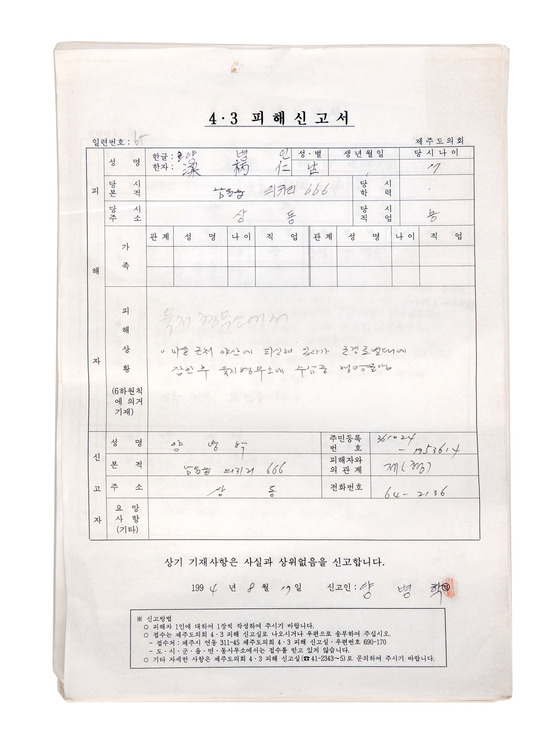 4·3 피해신고서
일련번호: 65 제주도의회
성 명 한글: 양 병 인 성·별 생년월일 당시나이
한자: 梁 柄 仁 남
피해자
당시본적 남원읍 의귀리 666 당시학력
당시주소 상 동 당시직업 농
가족 관계 성 명 나이 직 업 관계 성 명 나이 직 업
피해상황 육지 형무소에서
(6하원칙에 의거 기재)
· 마을 근처 야산에 피신해 있다가 군경토벌대에
잡힌 후 육지형무소에 수감중 행방불명
신고자
성 명 양 병 학 주민등록번호
본 적 남원읍 의귀리 666 피해자와의 관계 제(弟)
주 소 상 동 전화번호 64-2136
요망사항(기타)
상기 기재사항은 사실과 상위없음을 신고합니다.
1994 년 8 월 19 일 신고인: 양 병 학
※ 신고방법
○ 피해자 1인에 대하여 1장씩 작성하여 주시기 바랍니다.
○ 접수는 제주도의회 4·3 피해 신고실로 나오시거나 우편으로 송부하여 주십시오.
- 접수처 : 제주시 연동 311-45 제주도의회 4·3 피해 신고실·우편번호 690-170
- 도·시·군·읍·면·동사무소에서는 접수를 받고 있지 않습니다.
○ 기타 자세한 사항은 제주도의회 4·3 피해 신고실(☎41-2343~5)로 문의하여 주시기 바랍니다.